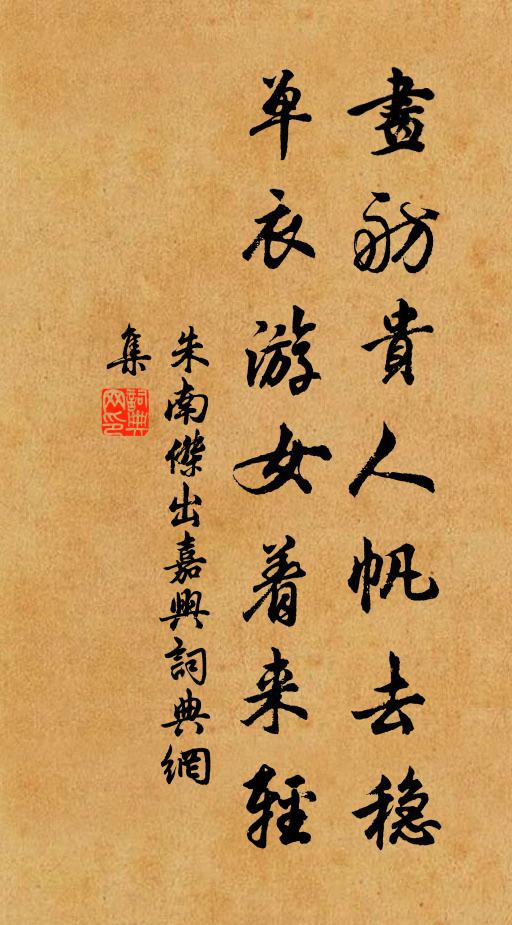 畫舫貴人帆去穩
单衣游女着来輕
朱南傑出嘉興詞典網
集
詞典網印